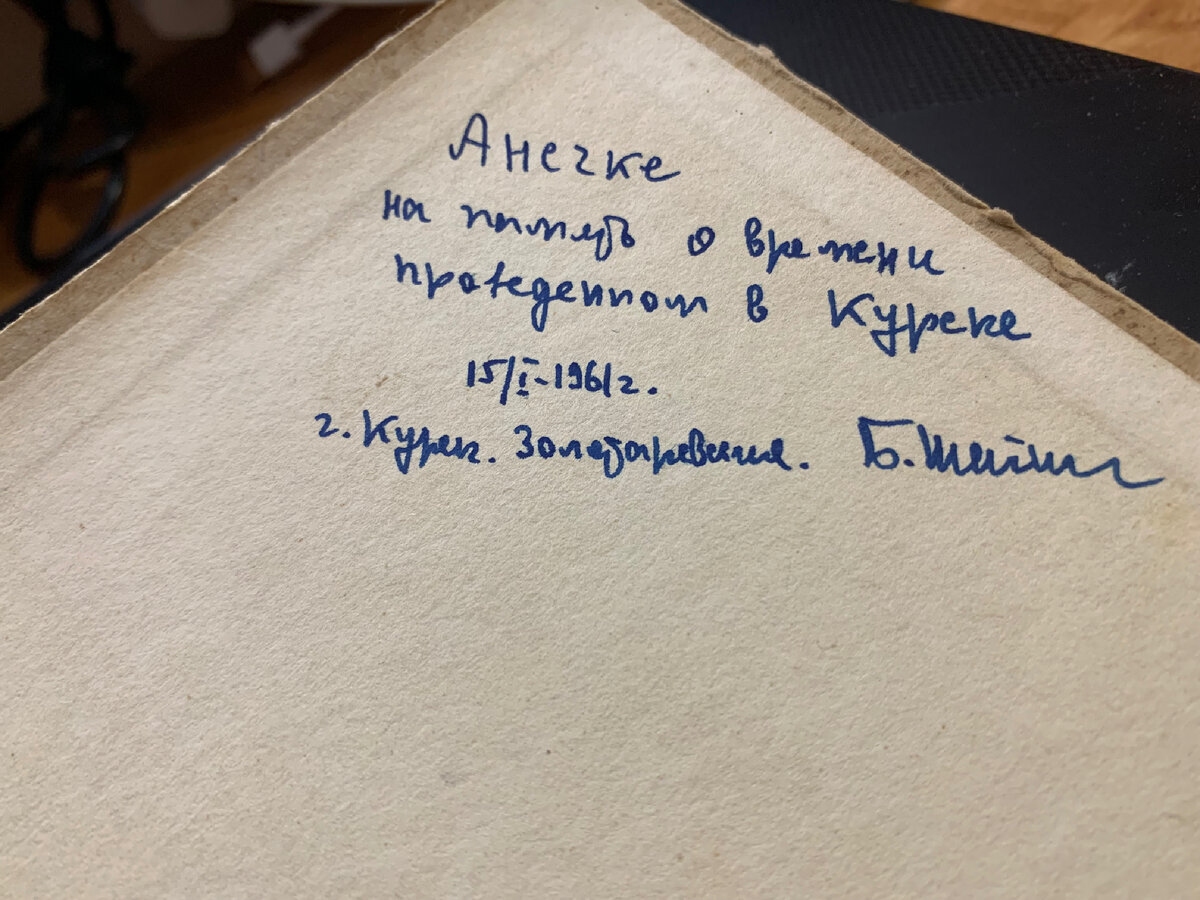 Анечке
на память о времени
проведенном в Курске
15/I-1961г.
г. Курск. Золотаревская. Б.